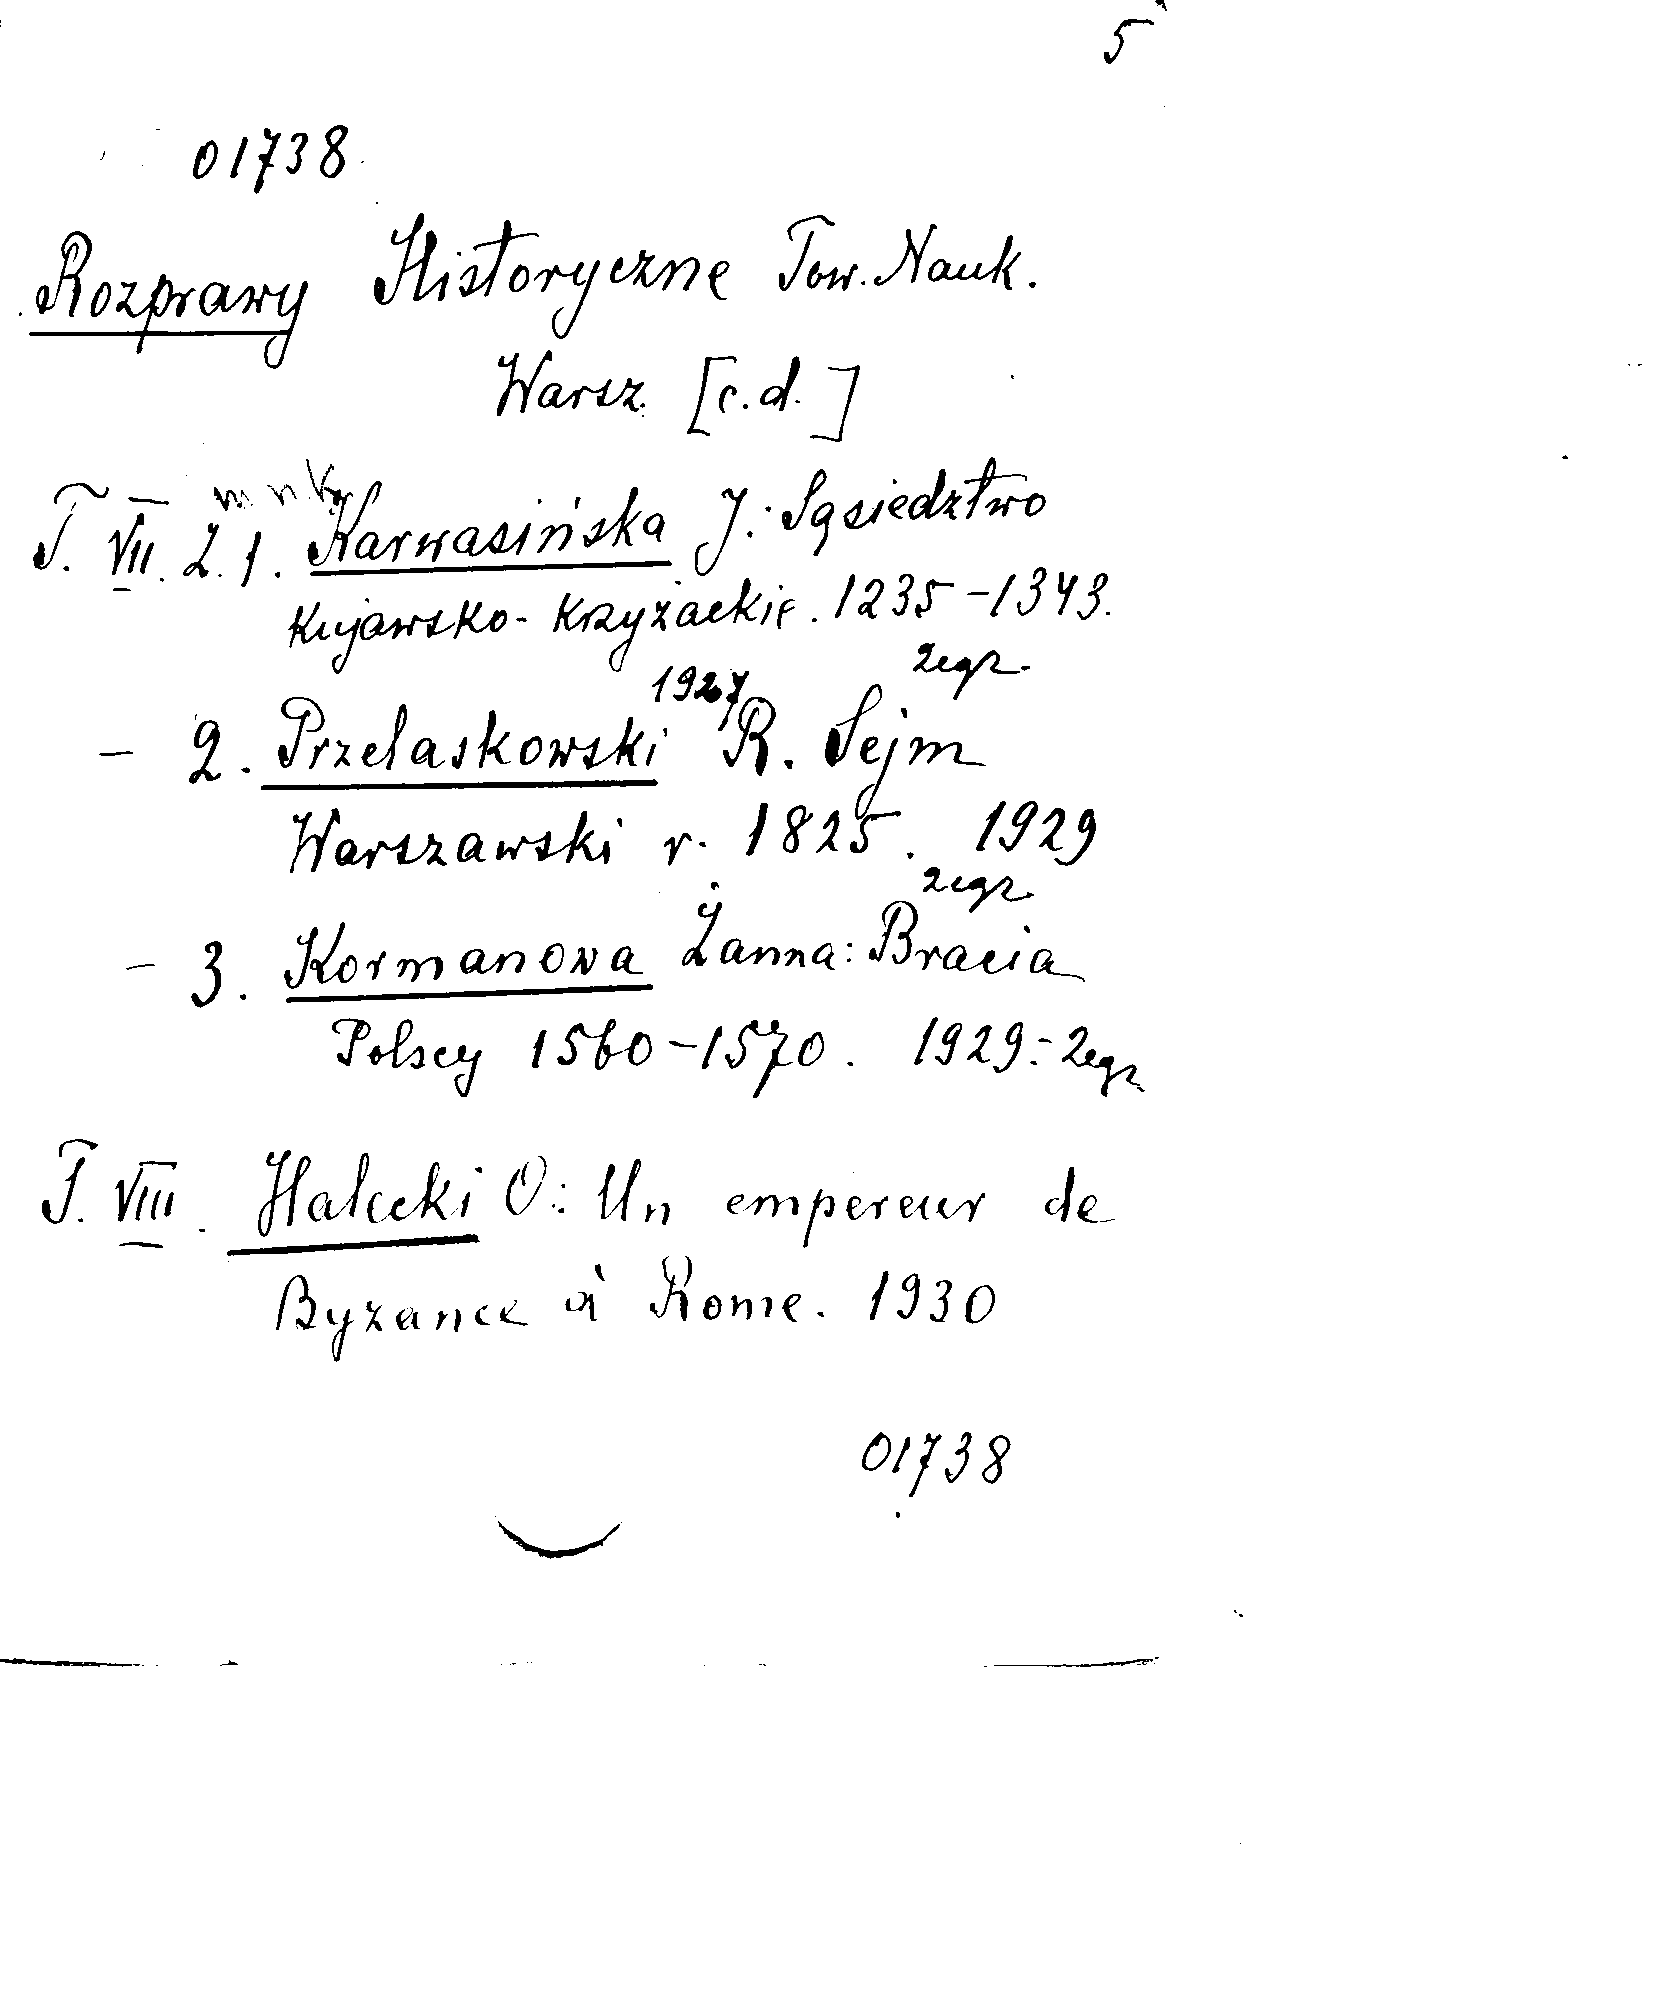 5
01738
Rozprawy Historyczne Tow. Nauk.
Warsz. [c.d.]
T. VII. Z. 1. Karwasińska J.: Sąsiedztwo
Kujawsko-Krzyżackie. 1235-1343.
1927 2egz.
- 2. Przelaskowski R. Sejm
Warszawski r. 1825. 1929
2egz.
- 3. Kormanowa Żanna: Bracia
Polscy 1560-1570. 1929.- 2egz.
T. VIII. Halecki O.: Un empereur de
Byzance à Rome. 1930
01738